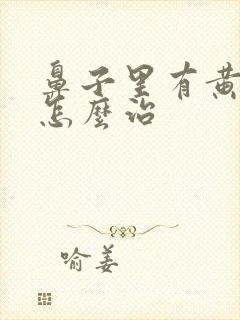 鼻子里有黄
怎麽治
喻姜